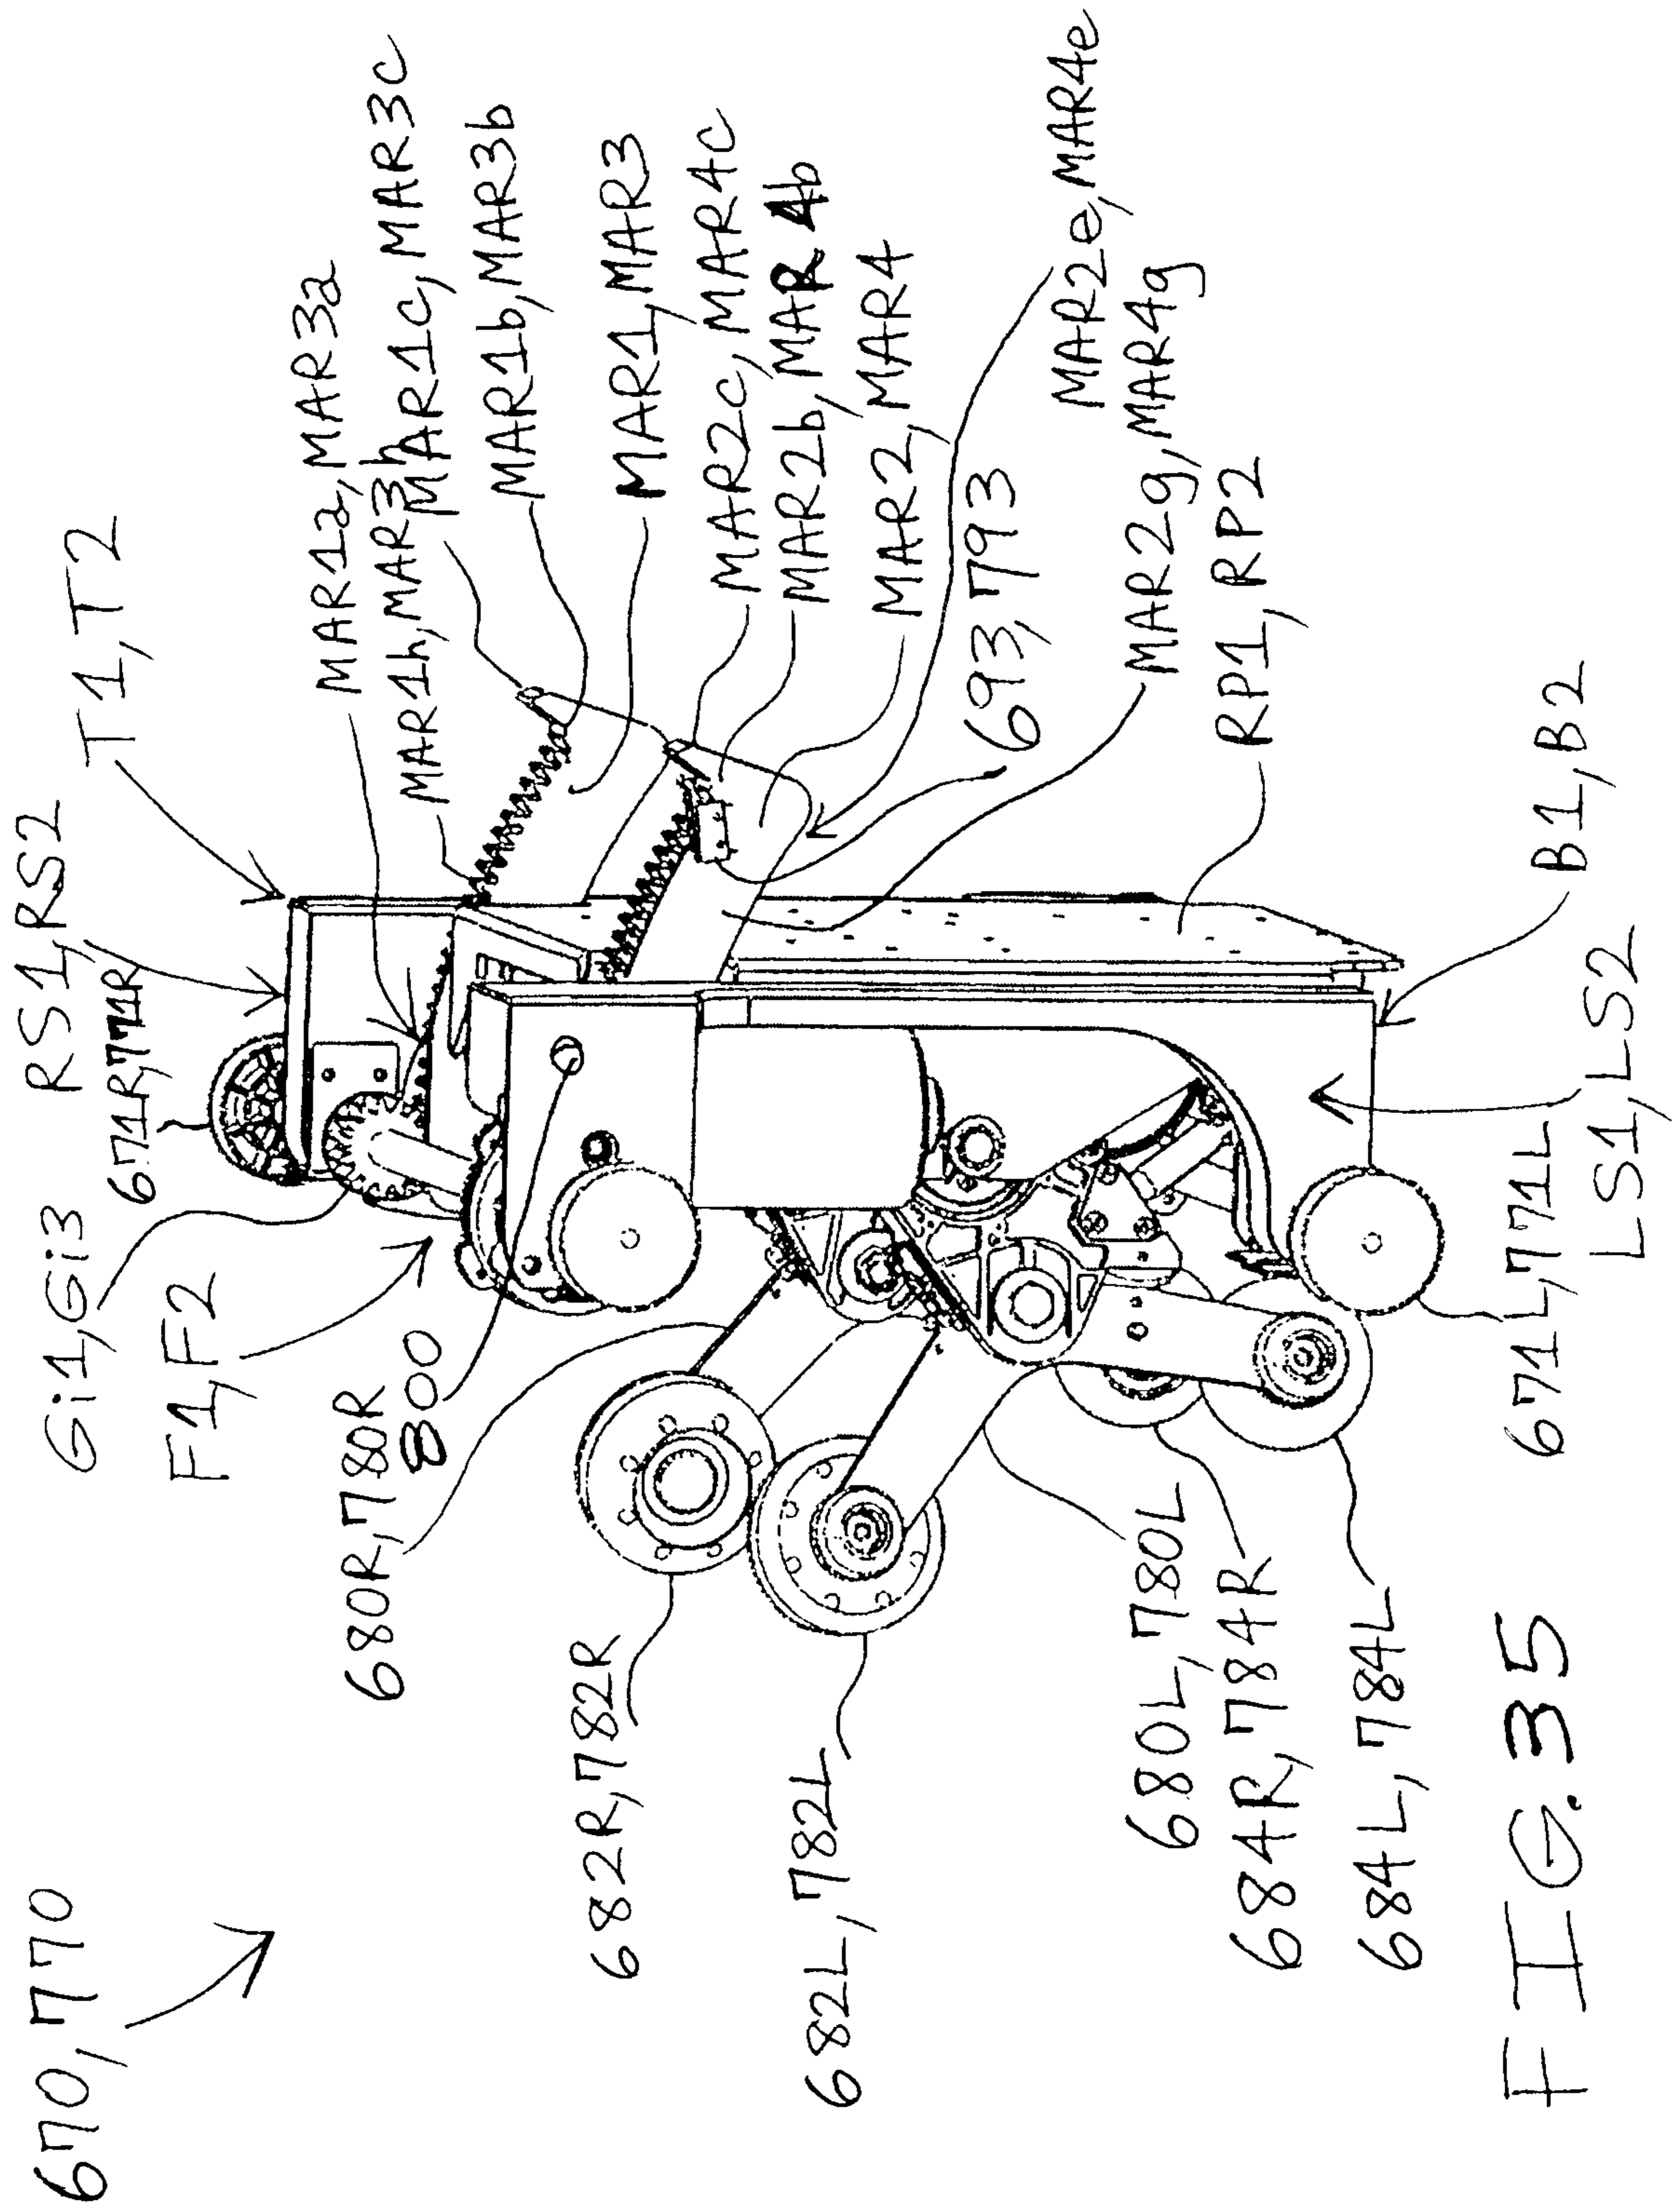 670,770
Gi1,Gi3
RS1,RS2
671R,771R
T1,T2
F1,F2
MAR1a,MAR3a
MAR1h,MAR3h
MAR1c,MAR3c
MAR1b,MAR3b
MAR1,MAR3
MAR2c,MAR4c
MAR2b,MAR4b
MAR2,MAR4
693,793
MAR2e,MAR4e
MAR2g,MAR4g
RP1,RP2
B1,B2
LS1,LS2
671L,771L
680R,780R
800
682R,782R
682L,782L
680L,780L
684R,784R
684L,784L
FIG.35